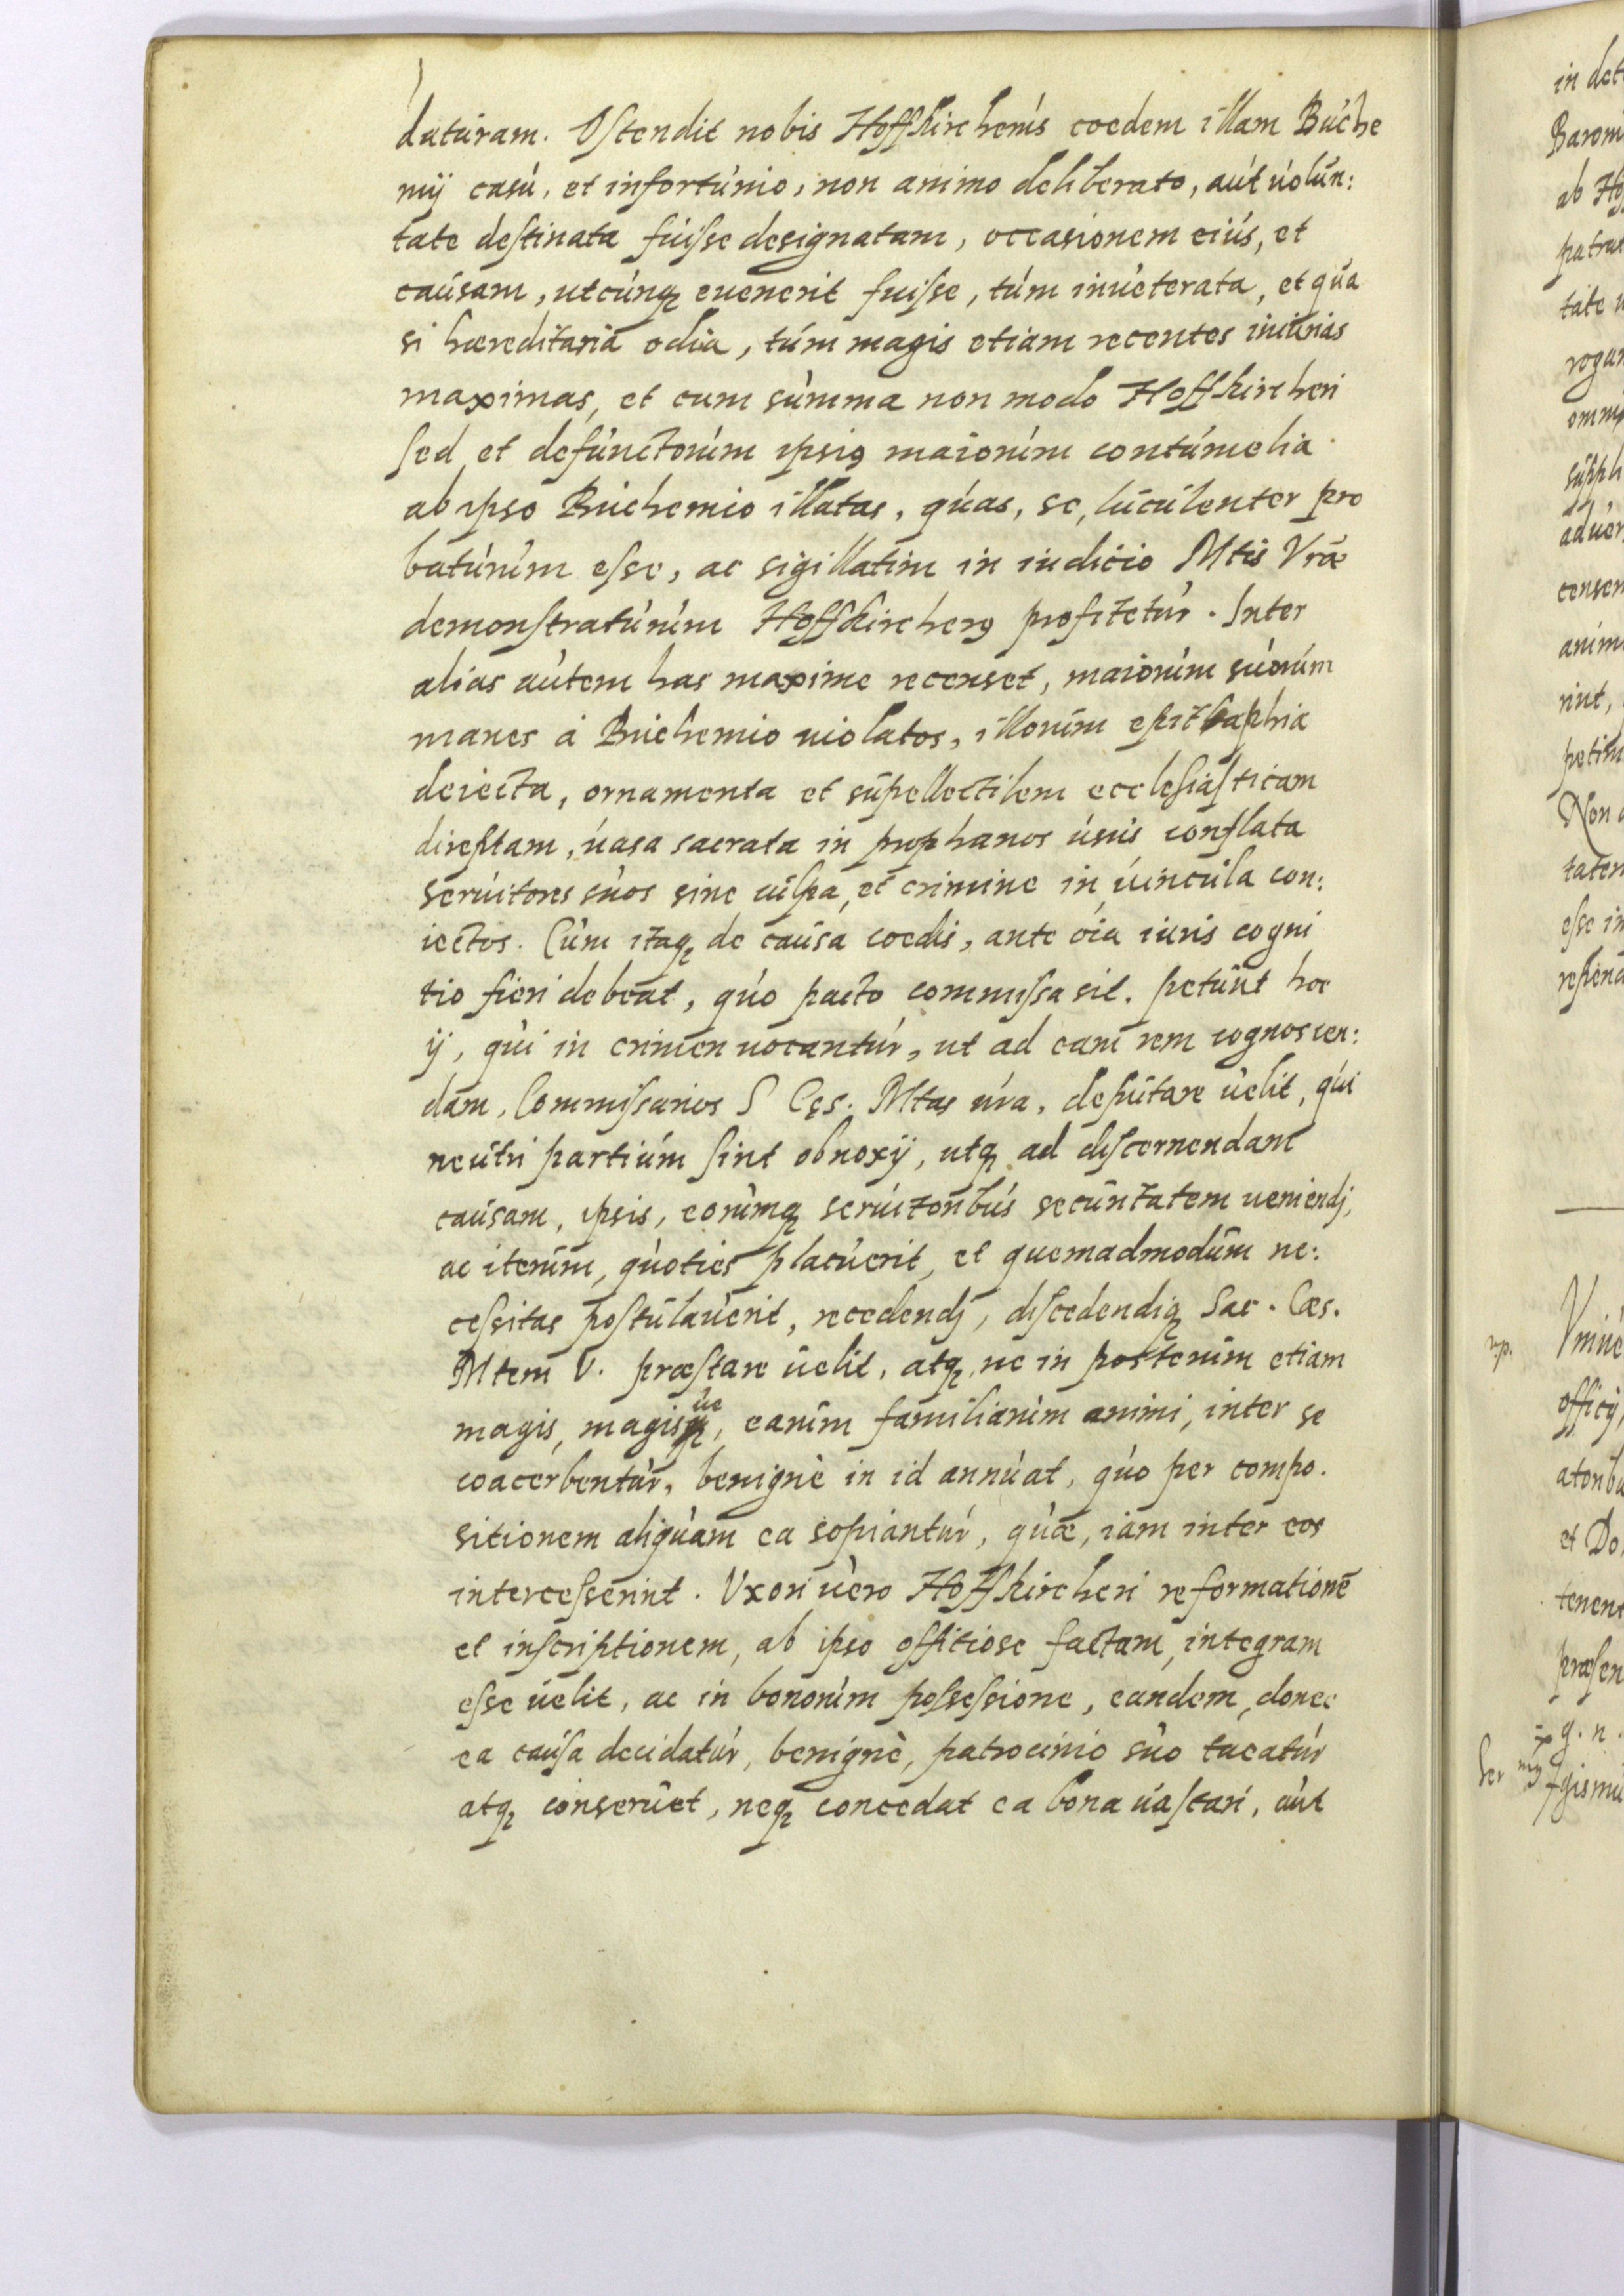 daturam. Ostendit nobis Hoffkircherus coedem illam Buche
mij casu, et infortunio, non animo deliberato, aut uolun:
tate destinata fuisse designatam, occasionem eius, et
causam, utcunq euenerit fuisse, tum inueterata, et qua
si haereditaria odia, tum magis etiam recentes iniurias
maximas, et cum summa non modo Hoffkircheri
sed et defunctorum ipsiꝰ maiorum contumelia
ab ipso Buchemio illatas, quas, se, luculenter pro
baturum esse, ac sigillatim in iudicio Mtis Vrae
demonstraturum Hoffkircherꝰ profitetur. Inter
alias autem has maxime recenset, maiorum suorum
manes a Buchemio uiolatos, illorum epithaphia
deiecta, ornamenta et supellectilem ecclesiasticam
direptam, uasa sacrata in prophanos usus conflata
seruitores suos sine culpa, et crimine in uincula con:
iectos. Cum itaq de causa coedis, ante oia iuris cogni
tio fieri debeat, quo pacto commissa sit. petunt hoc
ij, qui in crimen uocantur, ut ad eam rem cognoscen:
dam, Commissarios S Cęs. Mtas ura, deputare uelit, qui
neutri partium sint obnoxij, utq ad discernendam
causam, ipsis, eorumq seruitoribus securitatem ueniendj,
ac iterum, quoties placuerit, et quemadmodum ne:
cessitas postulauerit, recedendj, discedendiq Sac. Caes.
Mtem V. praestare uelit, atq, ne in posterum etiam
magis, magisque, earum familiarum animi, inter se
coacerbentur, benignè in id annuat, quo per compo.
sitionem aliquam ea sopiantur, quae, iam inter eos
intercesserunt. Uxori uero Hoffkircheri reformationē
et inscriptionem, ab ipso offitiose factam, integram
esse uelit, ac in bonorum possessione, eandem, donec
ea causa decidatur, benignè, patrocinio suo tueatur
atq conseruet, neq concedat ea bona uastari, aut